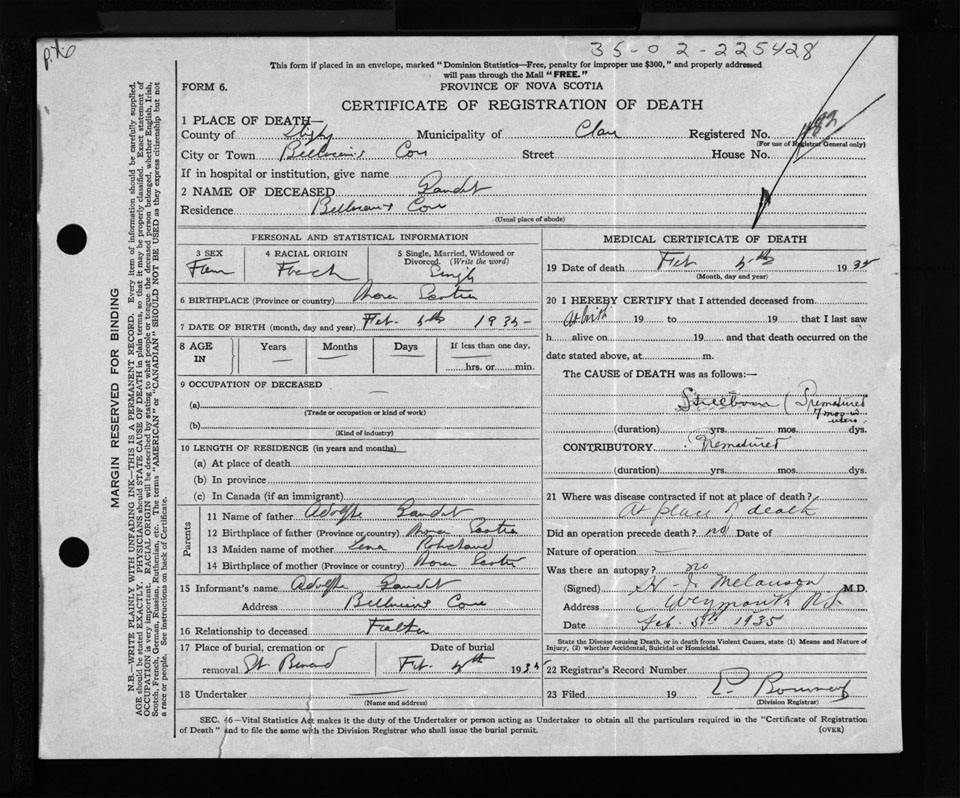 35-02-225428
This form if placed in an envelope, marked "Dominion Statistics—Free, penalty for improper use $300," and properly addressed
will pass through the Mail "FREE."
FORM 6.
PROVINCE OF NOVA SCOTIA
CERTIFICATE OF REGISTRATION OF DEATH
1 PLACE OF DEATH—
County of Digby Municipality of Clare Registered No. 
(For use of Registrar General only)
City or Town Cove Street House No.
If in hospital or institution, give name
2 NAME OF DECEASED Gaudet
Residence Cove
(Usual place of abode)
PERSONAL AND STATISTICAL INFORMATION
3 SEX
4 RACIAL ORIGIN
5 Single, Married, Widowed or Divorced. (Write the word)
Fem French Single
6 BIRTHPLACE (Province or country) Nova Scotia
7 DATE OF BIRTH (month, day and year) Feb. 5th 1935
8 AGE IN
Years Months Days If less than one day,
hrs. or min.
9 OCCUPATION OF DECEASED
(a)
(Trade or occupation or kind of work)
(b)
(Kind of industry)
10 LENGTH OF RESIDENCE (in years and months)
(a) At place of death
(b) In province
(c) In Canada (if an immigrant)
Parents
11 Name of father Adolphe Gaudet
12 Birthplace of father (Province or country) Nova Scotia
13 Maiden name of mother Lena
14 Birthplace of mother (Province or country) Nova Scotia
15 Informant's name Adolphe Gaudet
Address Cove
16 Relationship to deceased Father
17 Place of burial, cremation or removal St Bernard
Date of burial
Feb. 5th 1935
18 Undertaker
(Name and address)
MEDICAL CERTIFICATE OF DEATH
19 Date of death Feb 5th 1935
(Month, day and year)
20 I HEREBY CERTIFY that I attended deceased from
At birth 19 to 19 that I last saw
h alive on 19 and that death occurred on the
date stated above, at m.
The CAUSE of DEATH was as follows:—
Stillborn (Premature
7 mos in
utero
(duration) yrs. mos. dys.
CONTRIBUTORY Premature
(duration) yrs. mos. dys.
21 Where was disease contracted if not at place of death?
At place of death
Did an operation precede death? no Date of
Nature of operation
Was there an autopsy? no
(Signed) M.D.
Address Weymouth N.S.
Date Feb. 5th 1935
State the Disease causing Death, or in death from Violent Causes, state (1) Means and Nature of
Injury, (2) whether Accidental, Suicidal or Homicidal.
22 Registrar's Record Number
23 Filed 19
(Division Registrar)
SEC. 46—Vital Statistics Act makes it the duty of the Undertaker or person acting as Undertaker to obtain all the particulars required in the "Certificate of Registration
of Death" and to file the same with the Division Registrar who shall issue the burial permit.
(OVER)
MARGIN RESERVED FOR BINDING
N.B.—WRITE PLAINLY WITH UNFADING INK—THIS IS A PERMANENT RECORD. Every item of information should be carefully supplied.
AGE should be stated EXACTLY. PHYSICIANS should STATE CAUSE OF DEATH in plain terms, so that it may be properly classified. Exact statement of
OCCUPATION is very important. RACIAL ORIGIN will be described by stating to what people or tongue the deceased person belonged, whether English, Irish,
Scotch, French, German, Russian, Ruthenian, etc. The terms "AMERICAN" or "CANADIAN" SHOULD NOT BE USED as they express citizenship but not
a race or people. See instructions on back of Certificate.